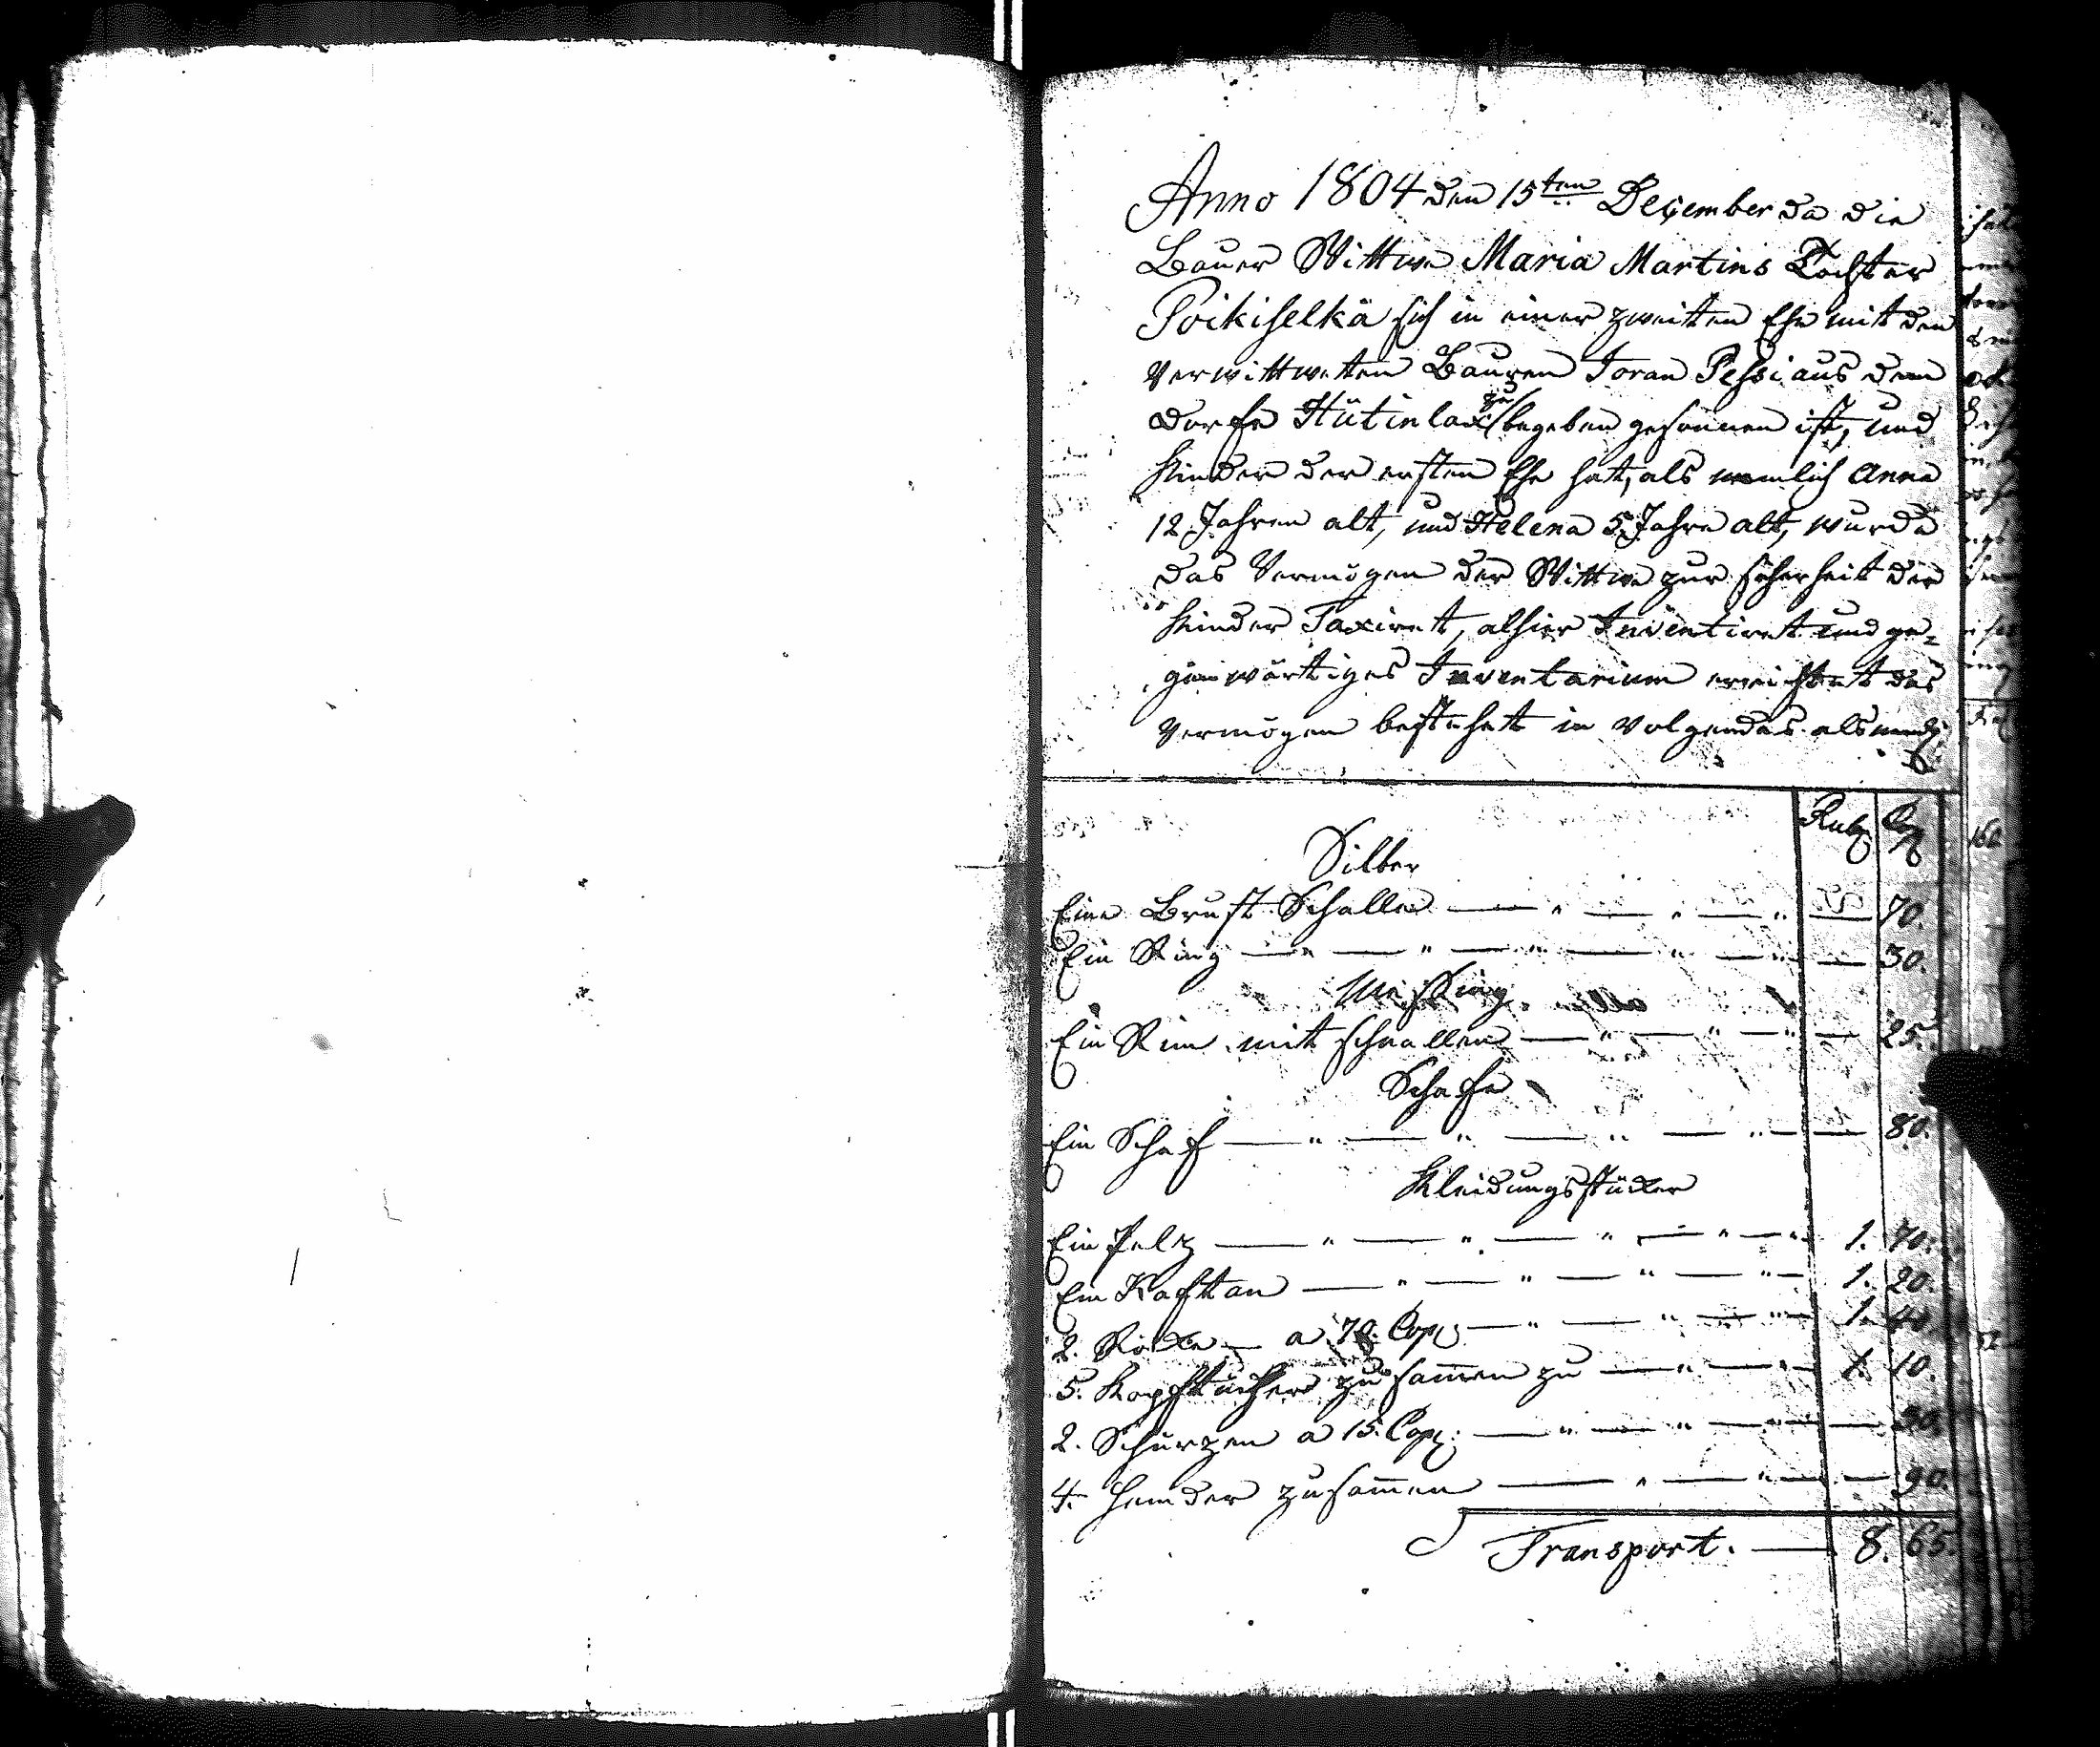 Anno 1804 den 15ten December da die
Bauer Wittwe Maria Martins Tochter
Poikiselkä sich in einer zweiten Ehe mit den
verwittweten Bauren Joran Pessi aus dem
dorfe Hütinlax zu begeben gesonnen ist, und
Kinder der ersten Ehe hat, als nemlich Anna
12 Jahren alt, und Helena 5 Jahre alt, wurde
das Vermögen der Wittwe zur sicherheit der
Kinder Taxiret, alhier Inventiret und ge-
genwärtiges Inventarium errichtet das
Vermögen bestehet in volgendes als neml:
Rub Cop
Silber
Eine Brust Schalle — " — " — " — 70.
Ein Ring — " — " — " — " — 30.
Messing
Ein Rim mit schnallen — " — " — " — 25.
Schafe
Ein Schaf — " — " — " — " — 80.
Kleidungsstücker
Ein Pelz — " — " — " — " — " 1. 70.
Ein Kaftan — " — " — " — " — 1. 20.
2. Röcke — a 70. Cop: — " — " — " — 1. 40.
5. Kopftücher zusam̄en zu — " — " — 1. 10.
2. Schürzen a 15. Cop: — " — " — " — 30.
4. Hemder zusam̄en — " — " — 90.
Transport. — 8. 65.